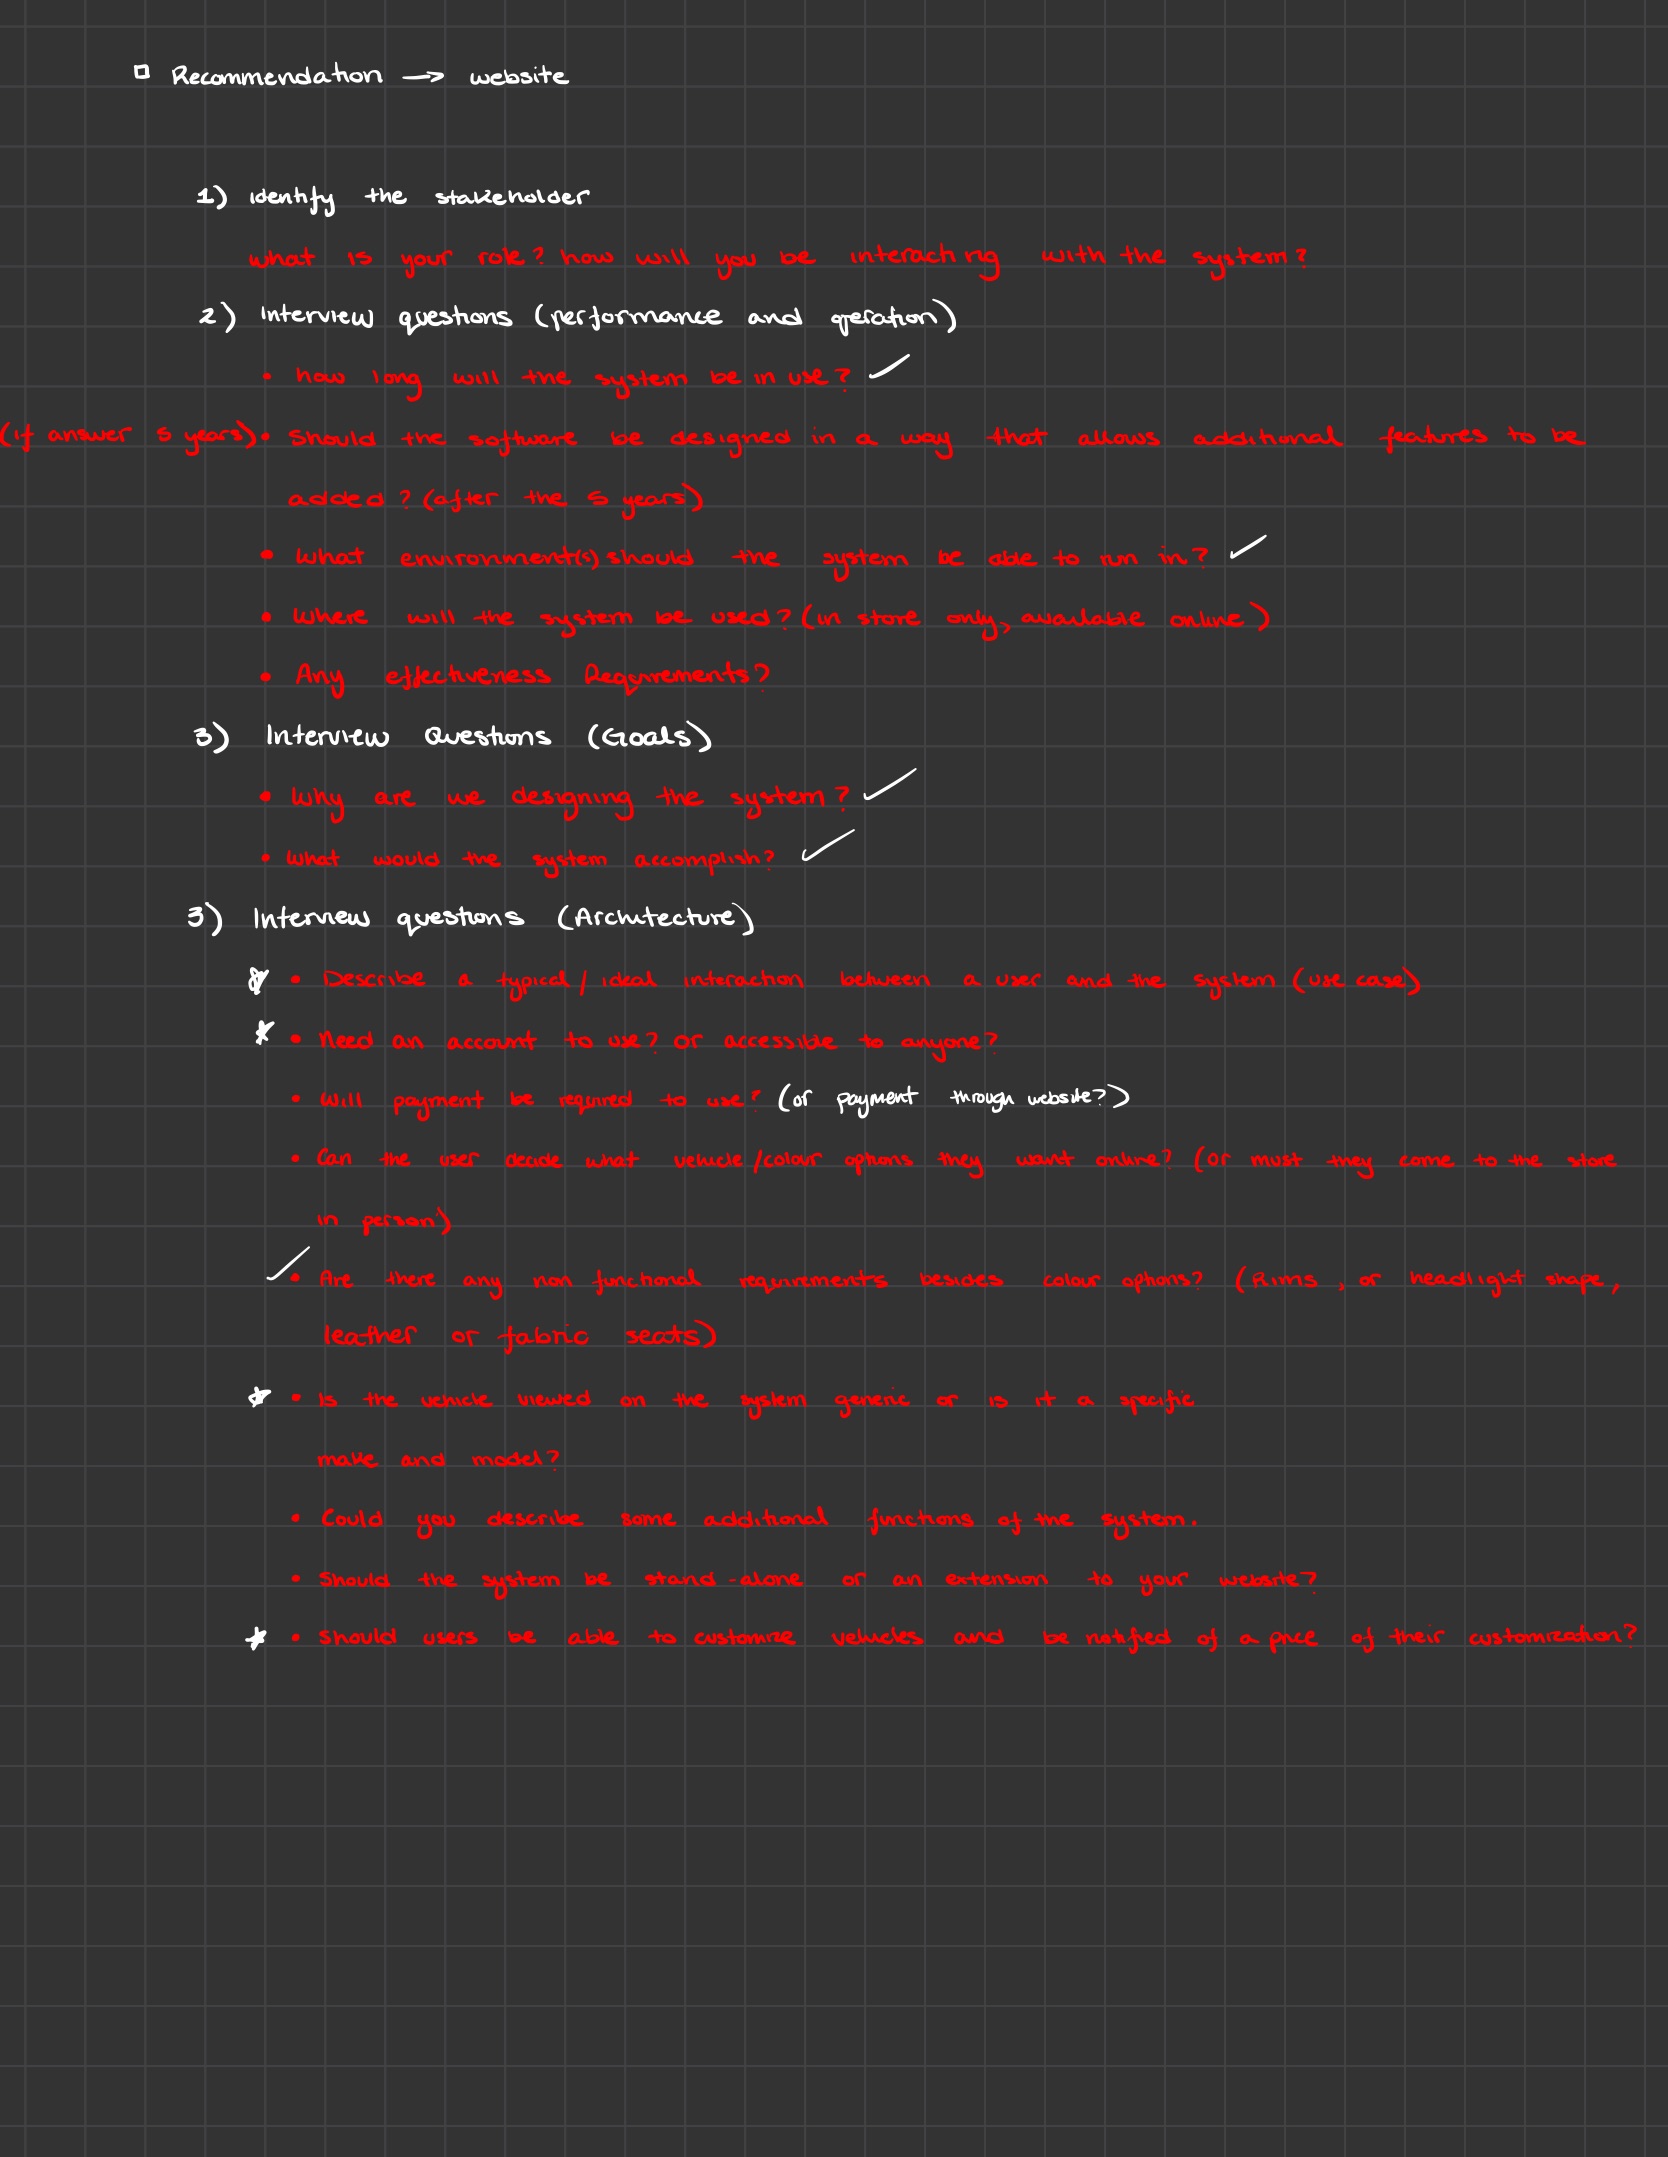 Recommendation → website
1) identify the stakeholder
what is your role? how will you be interacting with the system?
2) Interview questions (performance and operation)
• how long will the system be in use? ✓
(if answer 5 years) • Should the software be designed in a way that allows additional features to be
added? (after the 5 years)
• What environment(s) should the system be able to run in? ✓
• Where will the system be used? (in store only, available online)
• Any effectiveness Requirements?
3) Interview Questions (Goals)
• Why are we designing the system? ✓
• What would the system accomplish? ✓
3) Interview questions (Architecture)
• Describe a typical / ideal interaction between a user and the system (use case)
• Need an account to use? or accessible to anyone?
• Will payment be required to use? (or payment through website?)
• Can the user decide what vehicle/colour options they want online? (or must they come to the store
in person)
✓ • Are there any non functional requirements besides colour options? (Rims, or headlight shape,
leather or fabric seats)
• Is the vehicle viewed on the system generic or is it a specific
make and model?
• Could you describe some additional functions of the system.
• Should the system be stand-alone or an extension to your website?
• Should users be able to customize vehicles and be notified of a price of their customization?